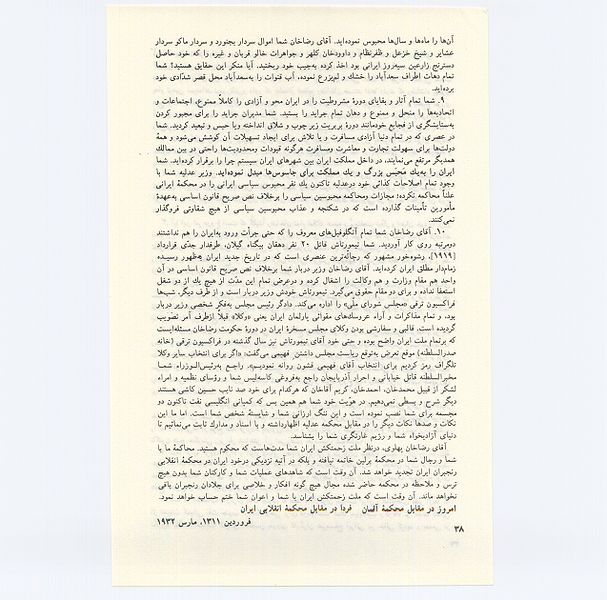 آن‌ها را ماه‌ها و سال‌ها محبوس نموده‌اید. آقای رضاخان شما اموال سردار بجنورد و سردار ماکو سردار
عشایر و شیخ خزعل و ظفرنظام و داودخان کلهر و جواهرات خالو قربان و غیره را که خود حاصل
دسترنج زارعین سیه‌روز ایرانی بود اخذ کرده به‌جیب خود ریختید. آیا منکر این حقایق هستید؟ شما
تمام دهات اطراف سعدآباد را خشك و لم‌یزرع نموده، آب قنوات را به‌سعدآباد محل قصر شدّادی خود
برده‌اید.
۹. شما تمام آثار و بقایای دورهٔ مشروطیت را در ایران محو و آزادی را کاملاً ممنوع، اجتماعات و
اتحادیه‌ها را منحل و ممنوع و دهان تمام جراید را بستید. شما مدیران جراید را برای مجبور کردن
به‌ستایشگری از فجایع خودمانند دورهٔ بربریت زیر چوب و شلاق انداخته ویا حبس و تبعید کردید. شما
در عصری که در تمام دنیا آزادی مسافرت و یا تلاش برای ایجاد تسهیلات آن کوشش می‌شود و همهٔ
دولت‌ها برای سهولت تجارت و معاشرت ومسافرت هرگونه قیودات ومحدودیت‌ها راحتی در بین ممالك
همدیگر مرتفع می‌نمایند، در داخل مملکت ایران بین شهرهای ایران سیستم چرا را برقرار کرده‌اید. شما
ایران را به‌یك مَحبَس بزرگ و یك مملکت برای جاسوس‌ها مبدل نموده‌اید. وزیر عدلیه شما با
وجود تمام اصلاحات کذائی خود درعدلیه تاکنون یك نفر محبوس سیاسی ایرانی را در محکمهٔ ایرانی
علناً محاکمه نکرده؛ مجازات ومحاکمه محبوسین سیاسی را برخلاف نص صریح قانون اساسی به‌عهدهٔ
مأمورین تأمینات گذارده است که در شکنجه و عذاب محبوسین سیاسی از هیچ شقاوتی فروگذار
نمی‌کنند.
۱۰. آقای رضاخان شما تمام آنگلوفیل‌های معروف را که حتی جرأت ورود به‌ایران را هم نداشتند
دومرتبه روی کار آوردید. شما تیمورتاش قاتل ۲۰ نفر دهقان بیگناه گیلان، طرفدار جدّی قرارداد
[۱۹۱۹]، رشوه‌خور مشهور که رجاله‌ترین عنصری است که در تاریخ جدید ایران به‌ظهور رسیده
زمام‌دار مطلق ایران کرده‌اید. آقای رضاخان وزیر دربار شما برخلاف نص صریح قانون اساسی در آن
واحد هم مقام وزارت و هم وکالت را اشغال کرده و درعرض تمام این مدّت از هیچ یك از دو شغل
استعفا نداده و برای دو مقام حقوق می‌گیرد. تیمورتاش خودش وزیر دربار است و از طرف دیگر، شب‌ها
فراکسیون ترقی «مجلس شورای ملّی» را اداره می‌کند. دادگر رئیس مجلس به‌فکر شخصی وزیر دربار
بود، و تمام مذاکرات و آراء عروسك‌های مقوائی پارلمان ایران یعنی «وکلا» قبلاً ازطرف آمر تصویب
گردیده است. قالبی و سفارشی بودن وکلای مجلس مسخرهٔ ایران در دورهٔ حکومت رضاخان مسئله‌ایست
که برتمام ملت ایران واضح بوده و حتی خود آقای تیمورتاش نیز سال گذشته در فراکسیون ترقی (خانه
صدرالسلطنه) موقع تعرض به‌توقع ریاست مجلس داشتن فهیمی می‌گفت: «اگر برای انتخاب سایر وکلا
تلگراف رمز کردیم برای انتخاب آقای فهیمی قشون روانه نمودیم». راجع به‌رئیس‌الوزراء شما
مخبرالسلطنه قاتل خیابانی و احرار آذربایجان راجع به‌فروغی کاسه‌لیس شما و رؤسای نظمیه و امراء
لشکر از قبیل محمدخان، احمدخان، کریم آقاخان که هرکدام برای خود صد نایب حسین کاشی هستند
دیگر شرح و بسطی نمی‌دهیم. در هویّت خود شما هم همین بس که کمپانی انگلیسی نفت تاکنون دو
مجسمه برای شما نصب نموده است و این ننگ ارزانی شما و شایستهٔ شخص شما است. اما ما این
نکات و صدها نکات دیگر را در مقابل محکمه عدلیه اظهارداشته و با اسناد و مدارك ثابت می‌نمائیم تا
دنیای آزادیخواه شما و رژیم غارتگری شما را بشناسد.
آقای رضاخان پهلوی، درنظر ملت زحمتکش ایران شما مدت‌هاست که محکوم هستید. محاکمهٔ ما با
شما و رجال شما در محکمهٔ برلین خاتمه نیافته و بلکه در آتیه نزدیکی درخود ایران در محکمهٔ انقلابی
رنجبران ایران تجدید خواهد شد. آن وقت است که شاهدهای عملیات شما و کارکنان شما بدون هیچ
ترس و ملاحظه در محکمه حاضر شده مجال هیچ گونه افکار و خلاصی برای جلادان رنجبران باقی
نخواهد ماند. آن وقت است که ملت زحمتکش ایران با شما و اعوان شما ختم حساب خواهد نمود.
امروز در مقابل محکمهٔ آلمان فردا در مقابل محکمهٔ انقلابی ایران
فروردین ۱۳۱۱، مارس ۱۹۳۲
۳۸